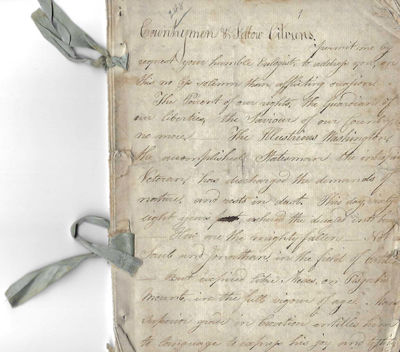 248
1
Countrymen & Fellow Citizens.
Permit me by
request your humble Eulogist to address you, on
this no less solemn than afflicting occasion.
The Parent of our rights, the guardian of
our liberties, the Saviour of our Country
no more. The Illustrious Washington
the accomplished Statesman the
Veteran, has discharged the demands of
nature, and rests in dust. This day
eight years ushered the deceased into
How are the mighty fallen. Not
Saul and Jonathan, in the field of battle
expired like Moses, on Pisgah's
mount, in the full vigour of age.
Superior good in Creation entitles him
to language to express his joy and